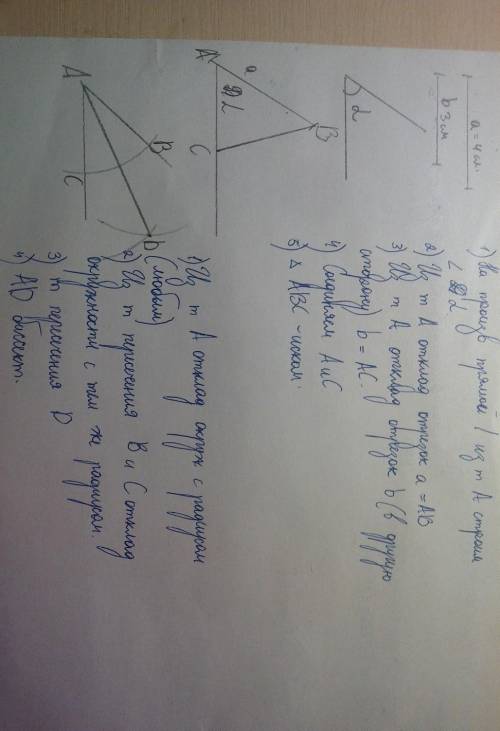 a = 4 см.
b 3 см
α
1) На произв прямой / из т А строим
∠ α
2) Из т А отклад отрезок a = AB
3) Из т А отклад отрезок b (в другую
сторону) b = AC.
4) Соединяем А и С
5) Δ ABC - иском.
A
a
α
B
C
1) Из т А отклад окруж с радиусом
(любым)
2) Из т пересечения В и С отклад
окружности с тем же радиусом.
3) т пересечения D
4) AD бисект.
A
B
C
D